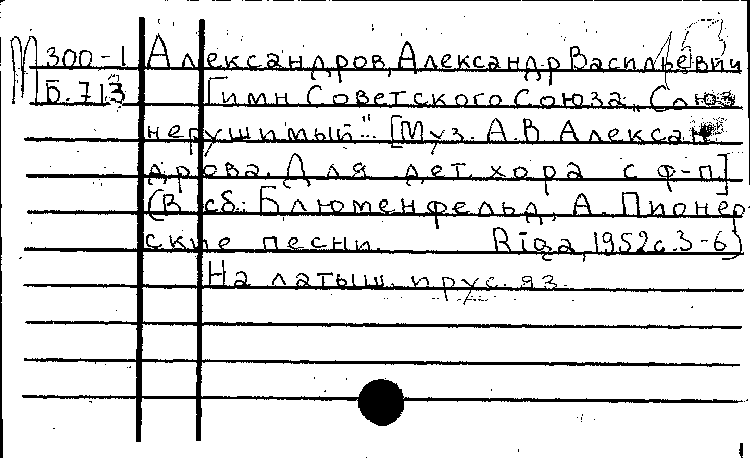 М 300-1 Александров, Александр Васильевич
Б. 713 Гимн Советского Союза „Союз
нерушимый". [Муз. А.В Алексан
дрова. Для дет. хора с ф-п.]
(В сб.: Блюменфельд, А. Пионер
ские песни. Rīga, 1952 с. 3-6)
На латыш. и рус. яз.